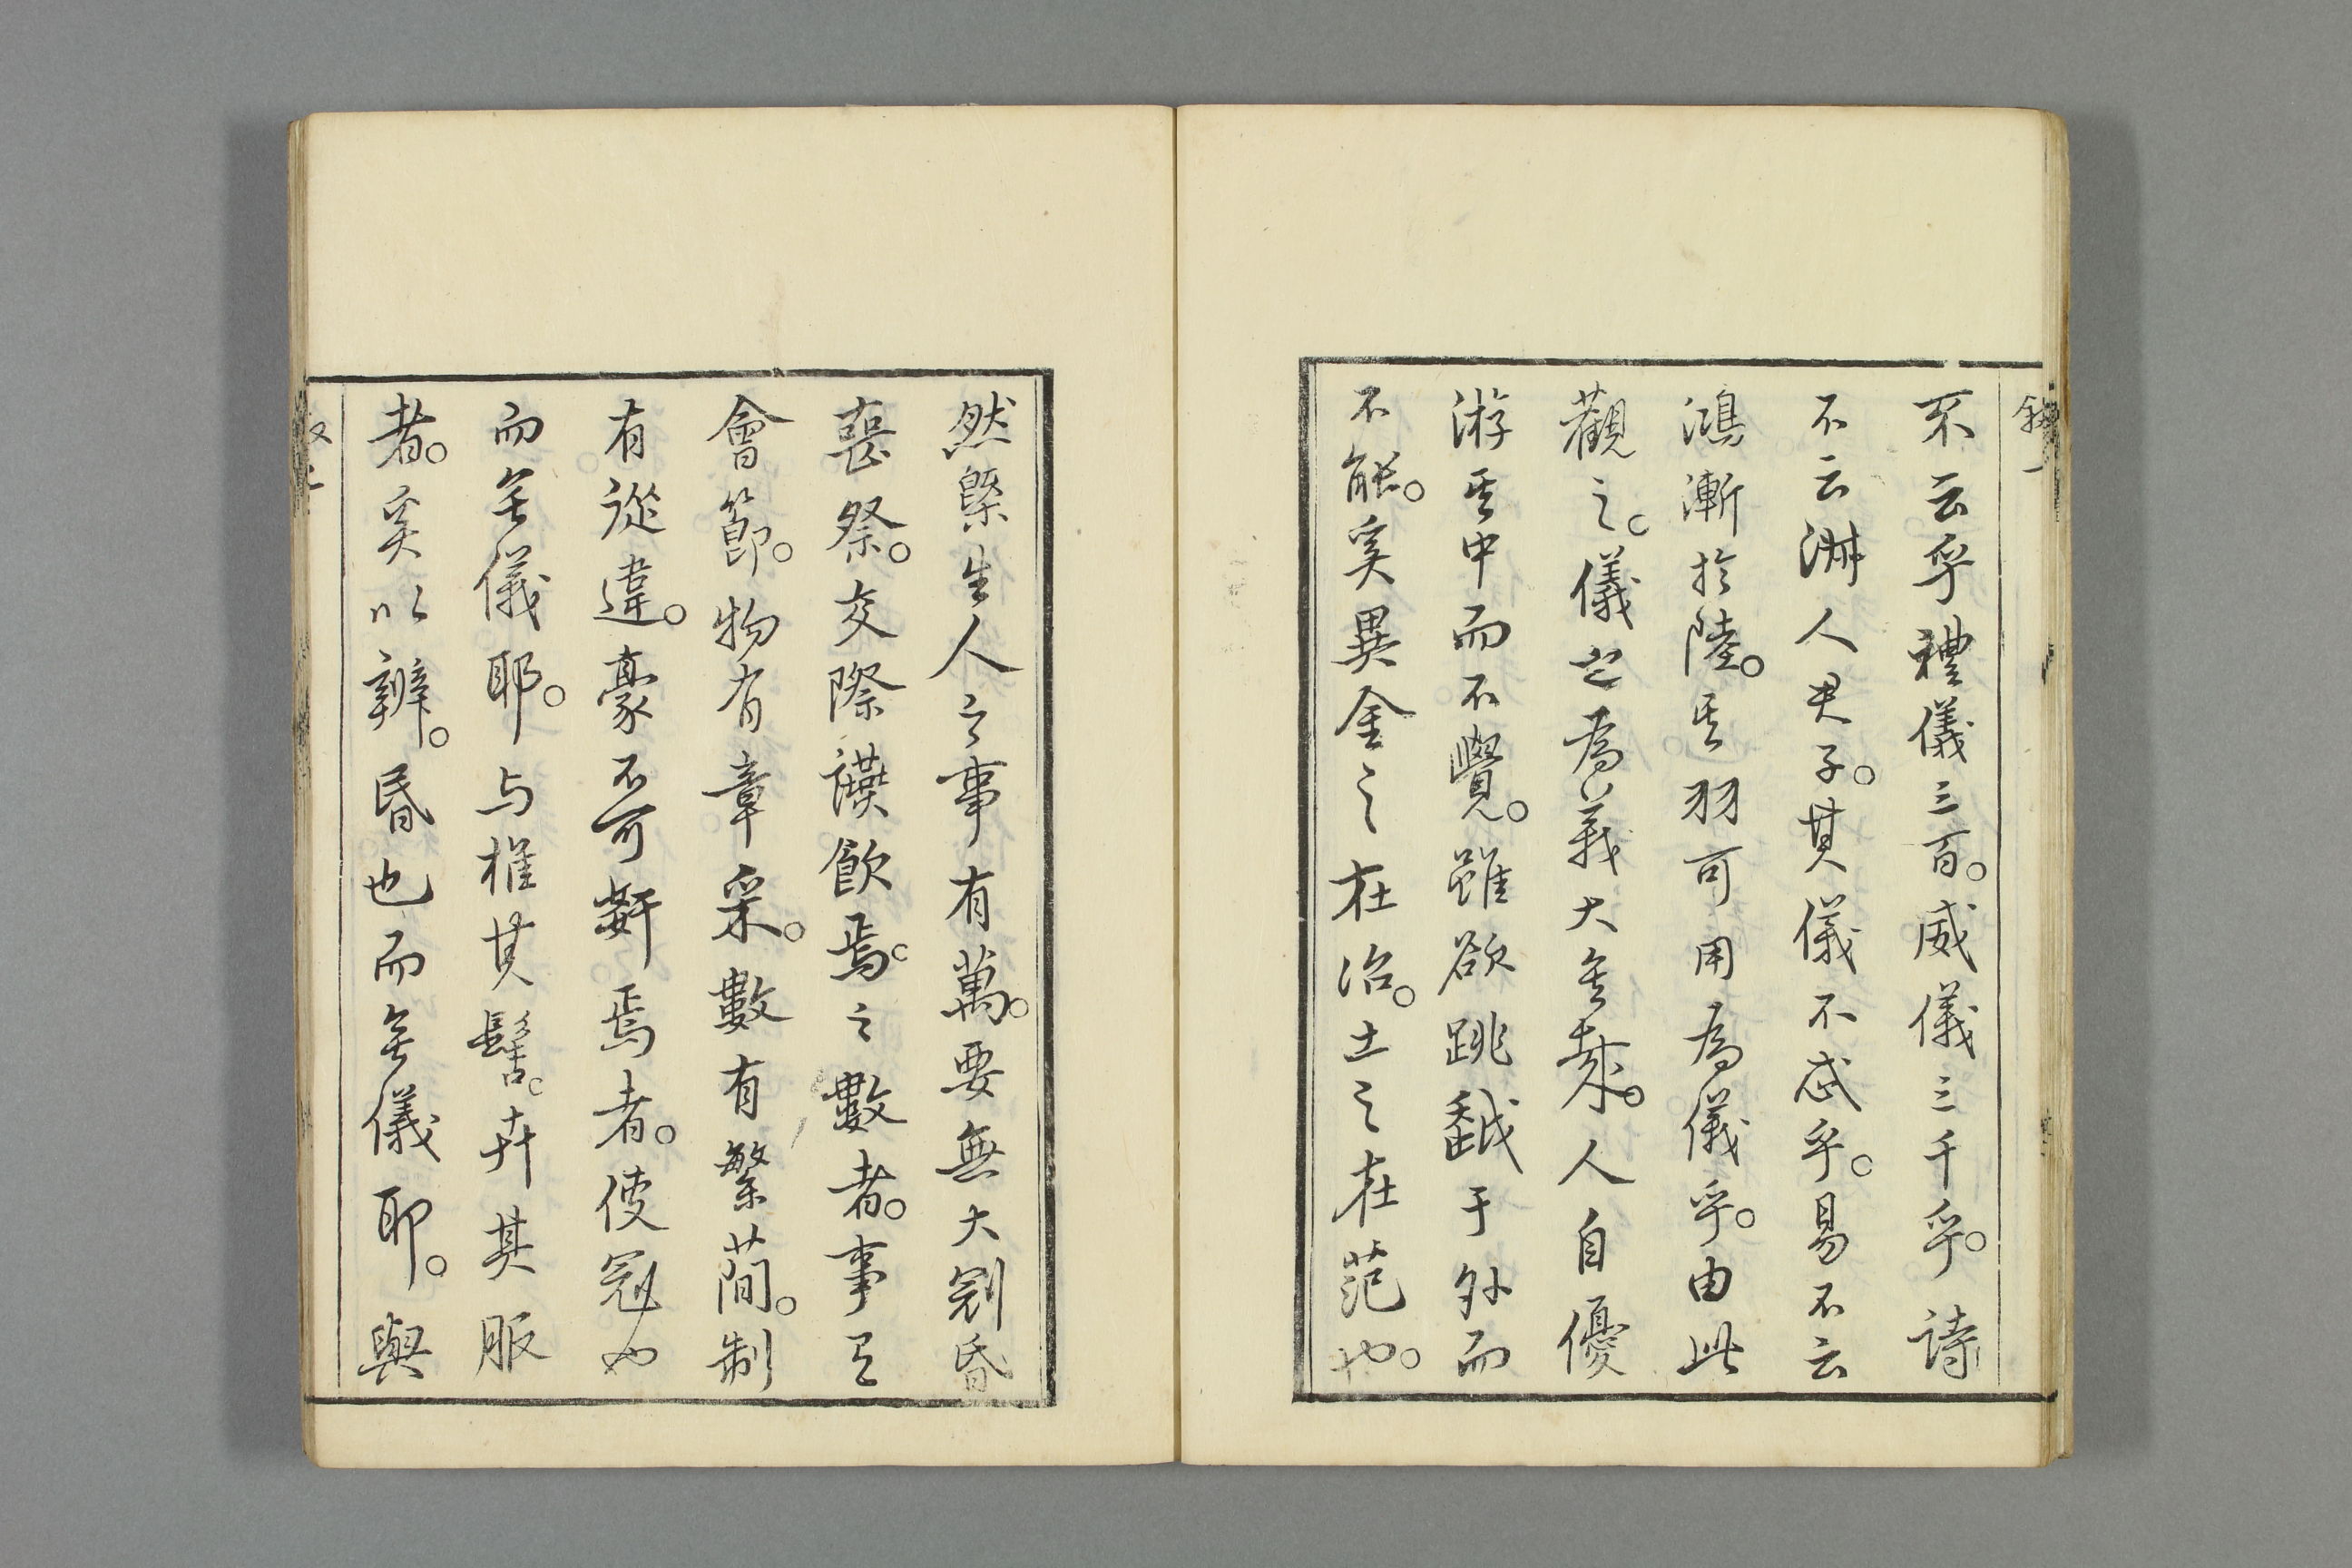 不云乎禮儀三百。威儀三千乎。詩
不云淋人君子。其儀不忒乎。易不云
鴻漸於陸。其羽可用為儀乎。由此
觀之。儀之為義大矣哉。人自優
游其中而不覺。雖欲跳越于外而
不能。奚異金之在冶。土之在范也。
然槩生人之事有萬。要無大冠昏
喪祭。交際讌飲焉。之數者。事有
會節。物有章采。數有繁蕳。制
有從違。豪不可姧焉者。使冠也
而無儀耶。与椎其髻。卉其服
者。奚以辨。昏也而無儀耶。與